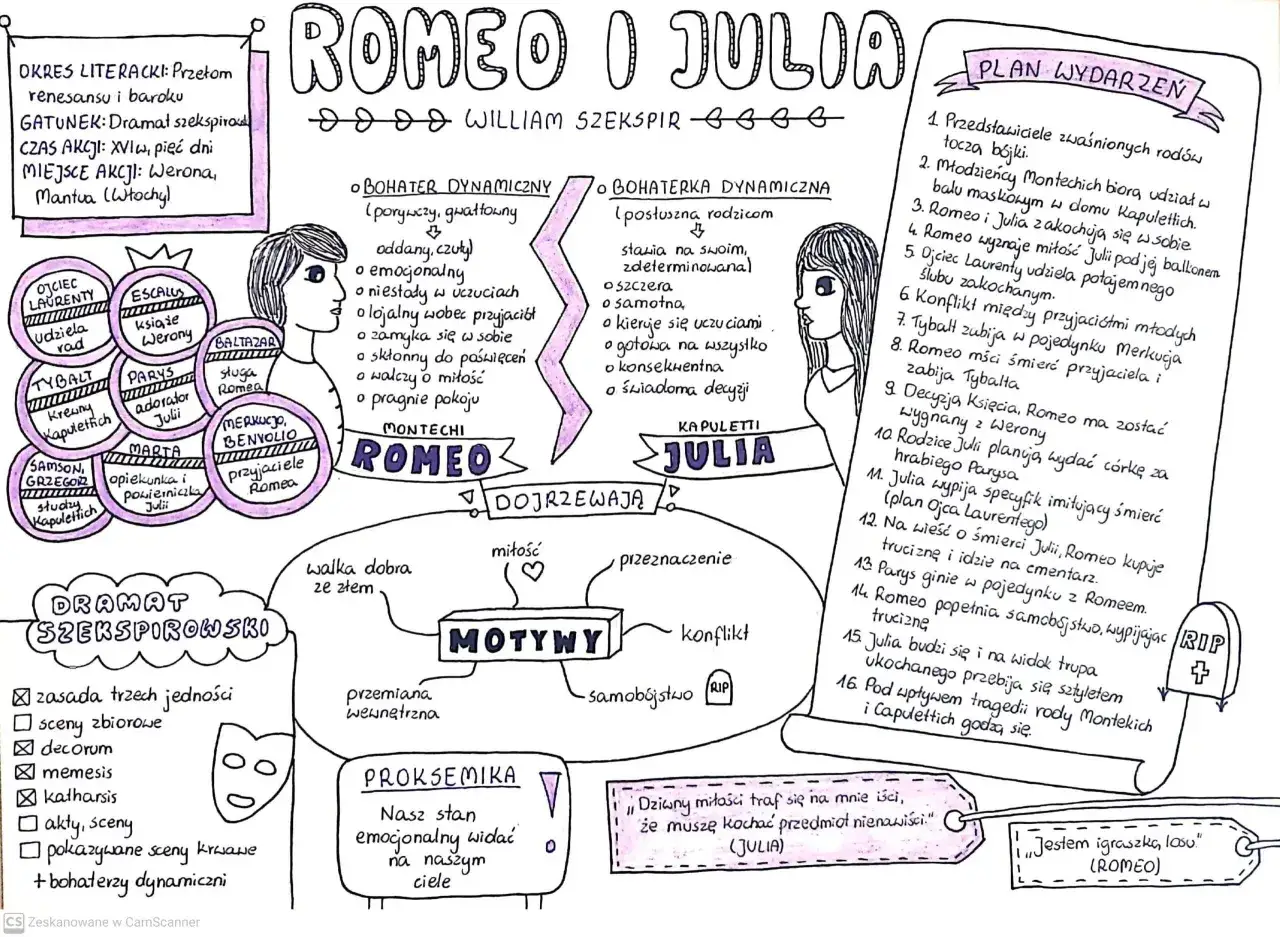 ROMEO I JULIA
WILLIAM SZEKSPIR
OKRES LITERACKI: Przełom
renesansu i baroku
GATUNEK: Dramat szekspirowski
CZAS AKCJI: XVI w, pięć dni
MIEJSCE AKCJI: Werona,
Mantua (Włochy)
OJCIEC
LAURENTY
udziela
rad
ESCALUS
książe
Werony
BALTAZAR
sługa
Romea
TYBALT
krewny
Kapulettich
PARYS
adorator
Julii
MERKUCJO,
BENVOLIO
przyjaciele
Romea
SAMSON,
GRZEGORZ
słudzy
Kapulettich
MARTA
opiekunka i
powierniczka
Julii
BOHATER DYNAMICZNY
(porywczy, gwałtowny
oddany, czuły)
emocjonalny
niestały w uczuciach
lojalny wobec przyjaciół
zamyka się w sobie
skłonny do poświęceń
walczy o miłość
pragnie pokoju
MONTECHI
ROMEO
BOHATERKA DYNAMICZNA
(posłuszna rodzicom
stawia na swoim,
zdeterminowana)
szczera
samotna
kieruje się uczuciami
gotowa na wszystko
konsekwentna
świadoma decyzji
KAPULETTI
JULIA
DOJRZEWAJĄ
MOTYWY
walka dobra
ze złem
miłość
przeznaczenie
konflikt
samobójstwo
RIP
przemiana
wewnętrzna
DRAMAT
SZEKSPIROWSKI
☒ zasada trzech jedności
☐ sceny zbiorowe
☒ decorum
☒ memesis
☒ katharsis
☐ akty, sceny
☐ pokazywane sceny krwawe
+ bohaterzy dynamiczni
PROKSEMIKA
Nasz stan
emocjonalny widać
na naszym
ciele
PLAN WYDARZEŃ
1. Przedstawiciele zwaśnionych rodów
toczą bójki.
2. Młodzieńcy Montechich biorą udział w
balu maskowym w domu Kapulettich.
3. Romeo i Julia zakochują się w sobie
4. Romeo wyznaje miłość Julii pod jej balkonem
5. Ojciec Laurenty udziela potajemnego
ślubu zakochanym.
6. Konflikt między przyjaciółmi młodych
7. Tybalt zubija w pojedynku Merkucja
8. Romeo mści śmierć przyjaciela i
zabija Tybalta
9. Decyzją Księcia, Romeo ma zostać
wygnany z Werony
10. Rodzice Juli planują wydać córkę za
hrabiego Parysa
11. Julia wypija specyfik imitujący śmierć
(plan Ojca Laurentego)
12. Na wieść o śmierci Julii, Romeo kupuje
truciznę i idzie na cmentarz.
13 Parys ginie w pojedynku z Romeem.
14. Romeo popełnia samobójstwo, wypijając
truciznę
15. Julia budzi się i na widok trupa
ukochanego przebija się sztyletem
16. Pod wpływem tragedii rody Montekich
i Capulettich godzą się.
RIP
„Dziwny miłości traf się na mnie iści,
że muszę kochać przedmiot nienawiści."
(JULIA)
„Jestem igraszką losu"
(ROMEO)
CS Zeskanowane w CamScanner